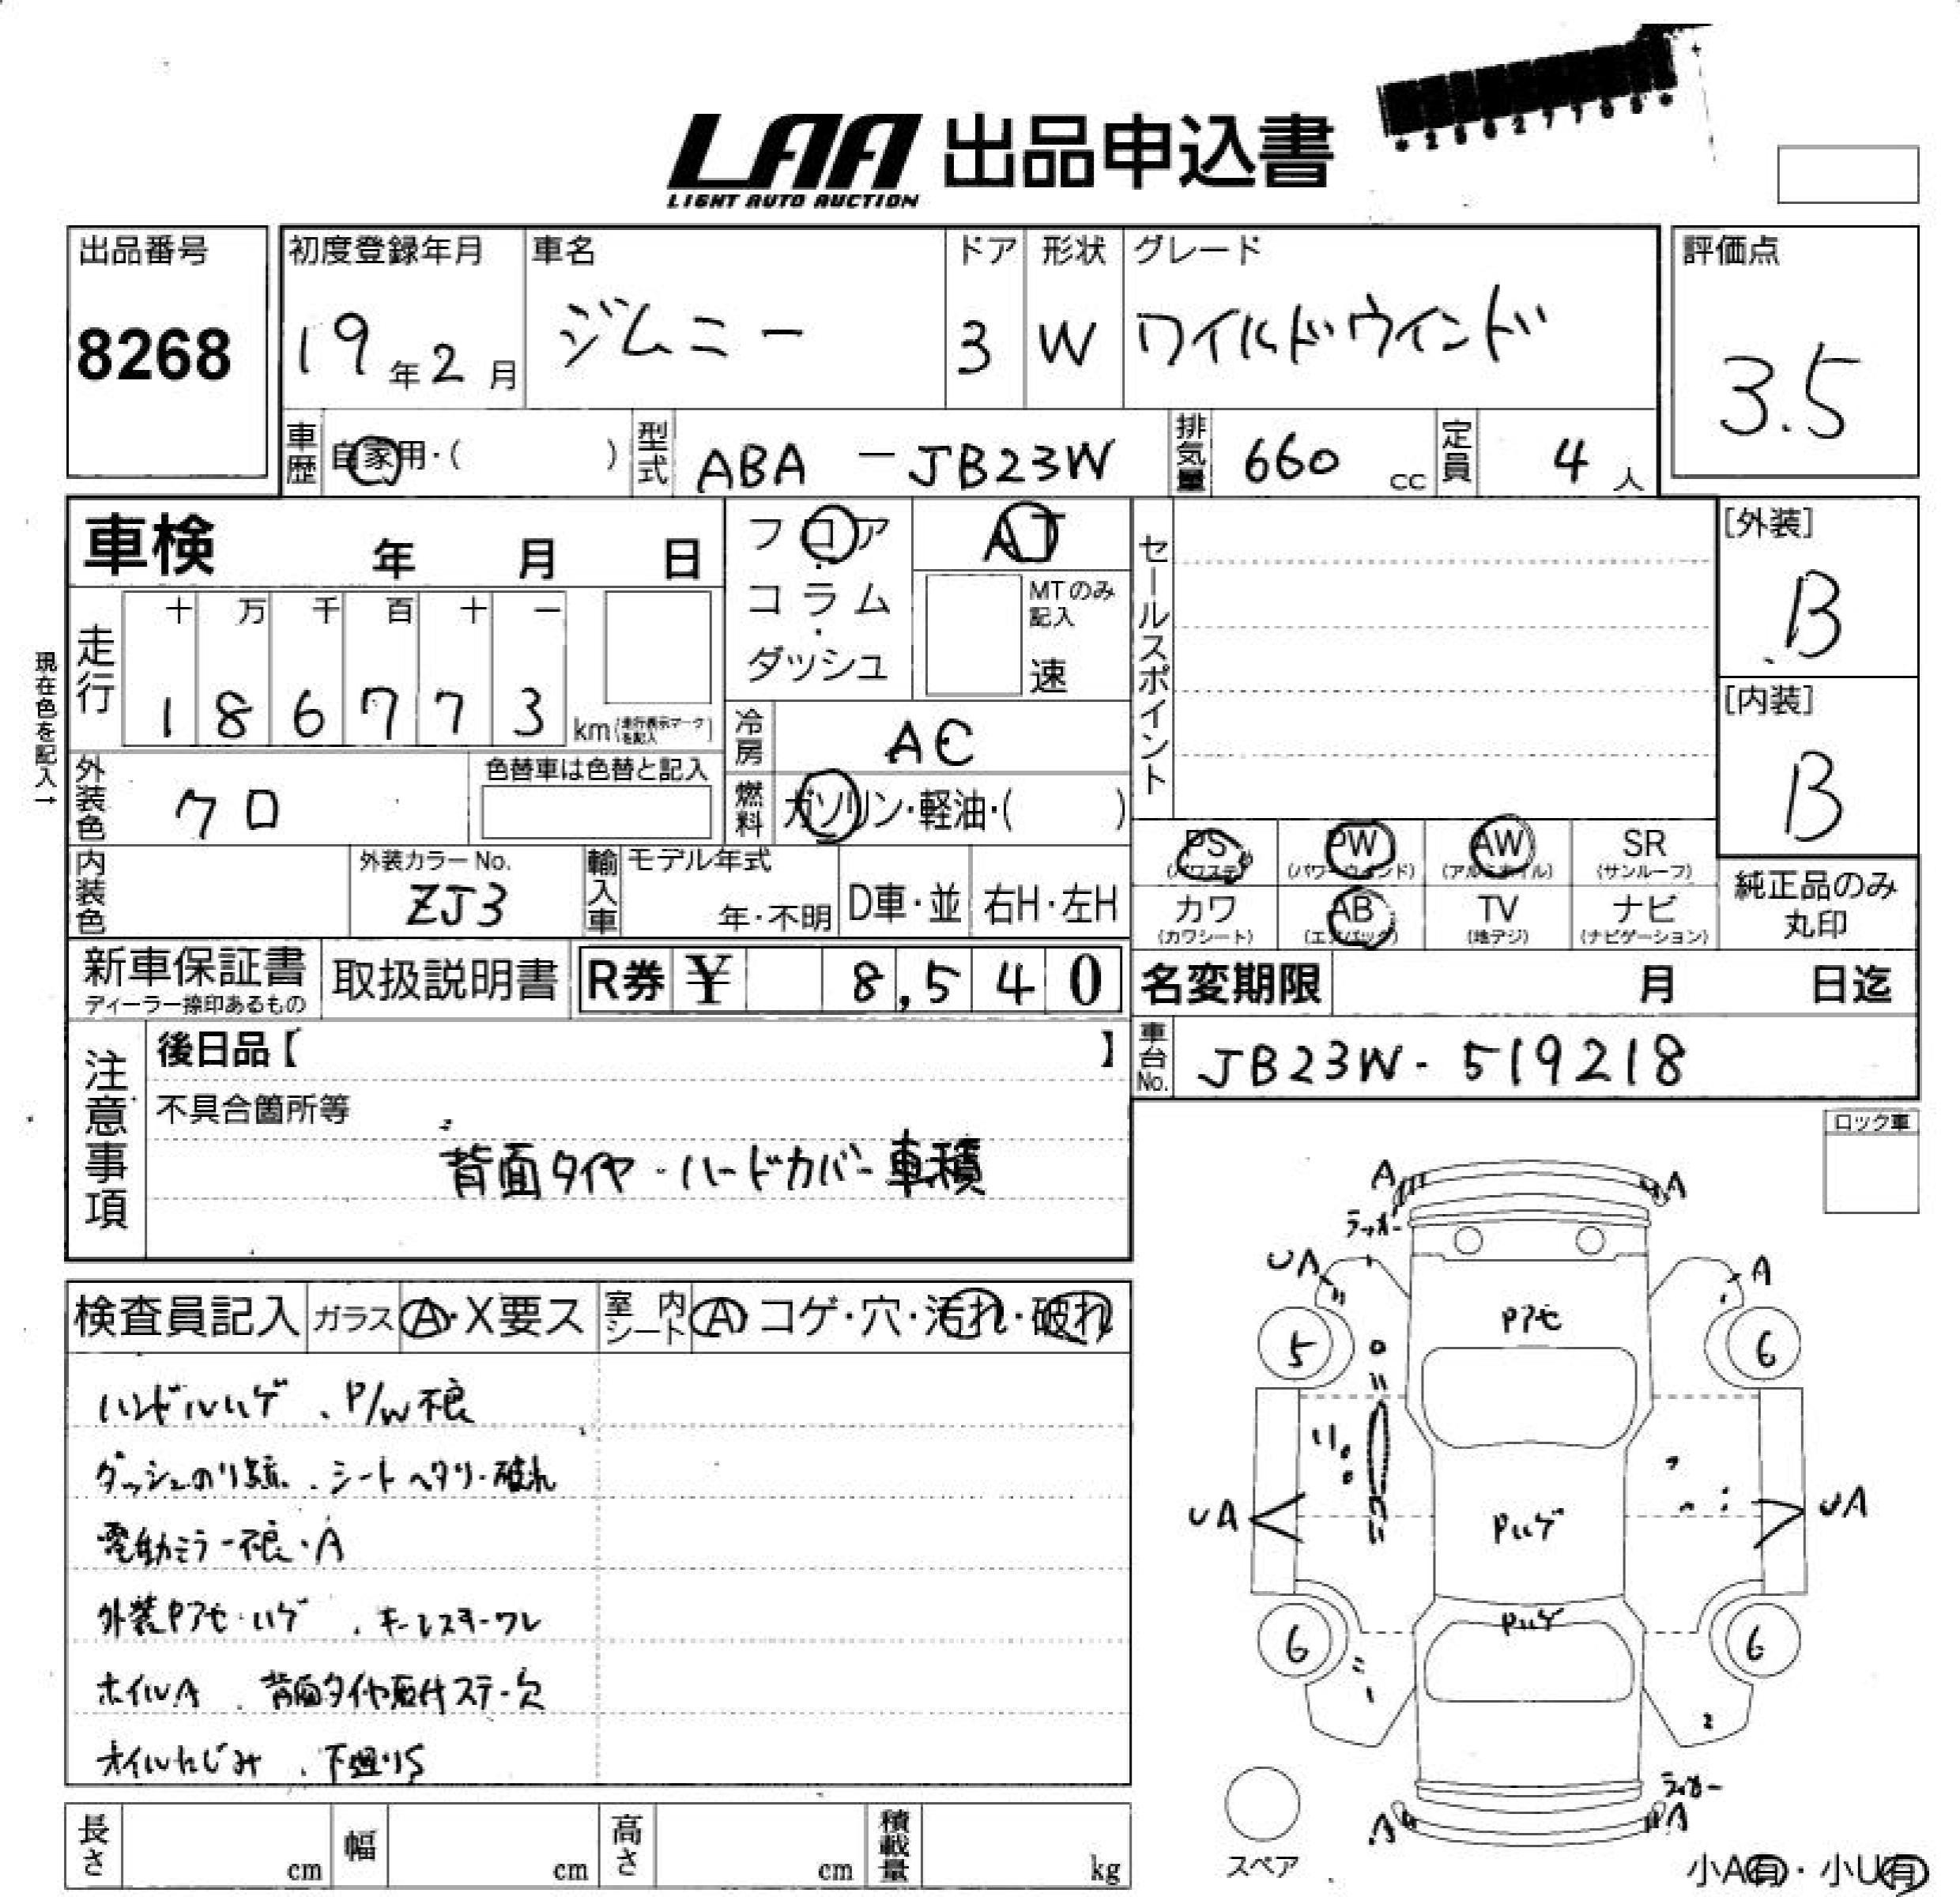 LAA 出品申込書
LIGHT AUTO AUCTION
出品番号
8268
初度登録年月
19年2月
車名
ジムニー
ドア
3
形状
W
グレード
ワイルドウインド
評価点
3.5
車歴 自家用・( )
型式 ABA-JB23W
排気量 660 cc
定員 4人
車検 年 月 日
走行 十 万 千 百 十 一
186773 km
(走行表示マークを記入)
現在色を記入→
外装色 クロ
色替車は色替と記入
内装色
外装カラーNo.
ZJ3
フロア・コラム・ダッシュ
AT
MTのみ記入
速
冷房 AC
燃料 ガソリン・軽油・( )
輸入車 モデル年式
年・不明
D車・並
右H・左H
セールスポイント
[外装]
B
[内装]
B
PS
(パワステ)
PW
(パワーウインド)
AW
(アルミホイル)
SR
(サンルーフ)
カワ
(カワシート)
AB
(エアバック)
TV
(地デジ)
ナビ
(ナビゲーション)
純正品のみ
丸印
新車保証書
ディーラー捺印あるもの
取扱説明書
R券 ¥ 8,540
名変期限 月 日迄
車台No. JB23W-519218
注意事項
後日品【 】
不具合箇所等
背面タイヤ・ハードカバー車積
ロック車
検査員記入
ガラス A・X要ス
室内シート A コゲ・穴・汚れ・破れ
ハンドルハゲ、P/W不良
ダッシュのり跡、シートヘタリ・破れ
電動ミラー不良・A
外装Pアセ・ハゲ、キーレスキーワレ
ホイルA、背面タイヤ取付ステー欠
オイルにじみ、下廻りS
A
A
ラッカー
UA
A
Pアセ
5
6
UA
Pハゲ
UA
Pハゲ
6
6
ラッカー
A
A
スペア
小A有・小U有
長さ cm
幅 cm
高さ cm
積載量 kg